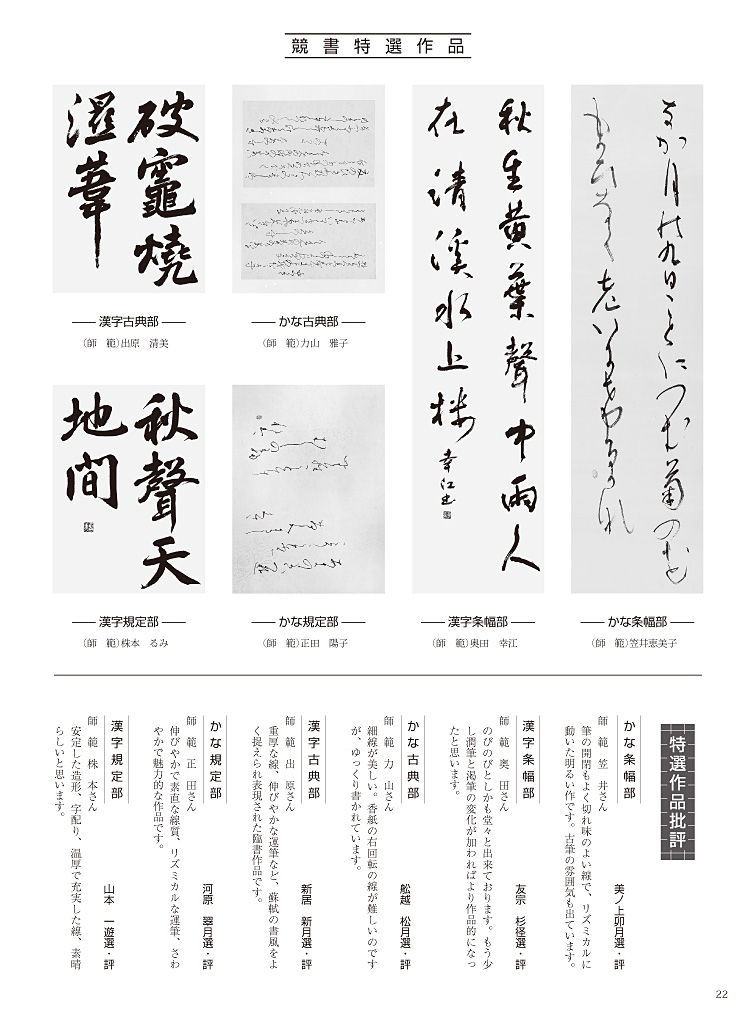 競書特選作品
破竈燒
濕葦
漢字古典部
（師　範）出原　清美
かな古典部
（師　範）力山　雅子
秋聲天
地間
漢字規定部
（師　範）株本　るみ
かな規定部
（師　範）正田　陽子
秋生黄葉聲中雨人
在清溪水上樓
幸江書
漢字条幅部
（師　範）奥田　幸江
かな条幅部
（師　範）笠井恵美子
特選作品批評
かな条幅部
美ノ上卯月選・評
師　範　笠　井さん
筆の開閉もよく切れ味のよい線で、リズミカルに
動いた明るい作です。古筆の雰囲気も出ています。
漢字条幅部
友宗　杉径選・評
師　範　奥　田さん
のびのびとしかも堂々と出来ております。もう少
し潤筆と渇筆の変化が加わればより作品的になっ
たと思います。
かな古典部
舩越　松月選・評
師　範　力　山さん
細線が美しい。香紙の右回転の線が難しいのです
が、ゆっくり書かれています。
漢字古典部
新居　新月選・評
師　範　出　原さん
重厚な線、伸びやかな運筆など、蘇軾の書風をよ
く捉えられ表現された臨書作品です。
かな規定部
河原　翠月選・評
師　範　正　田さん
伸びやかで素直な線質、リズミカルな運筆、さわ
やかで魅力的な作品です。
漢字規定部
山本　一遊選・評
師　範　株　本さん
安定した造形、字配り、温厚で充実した線、素晴
らしいと思います。
22